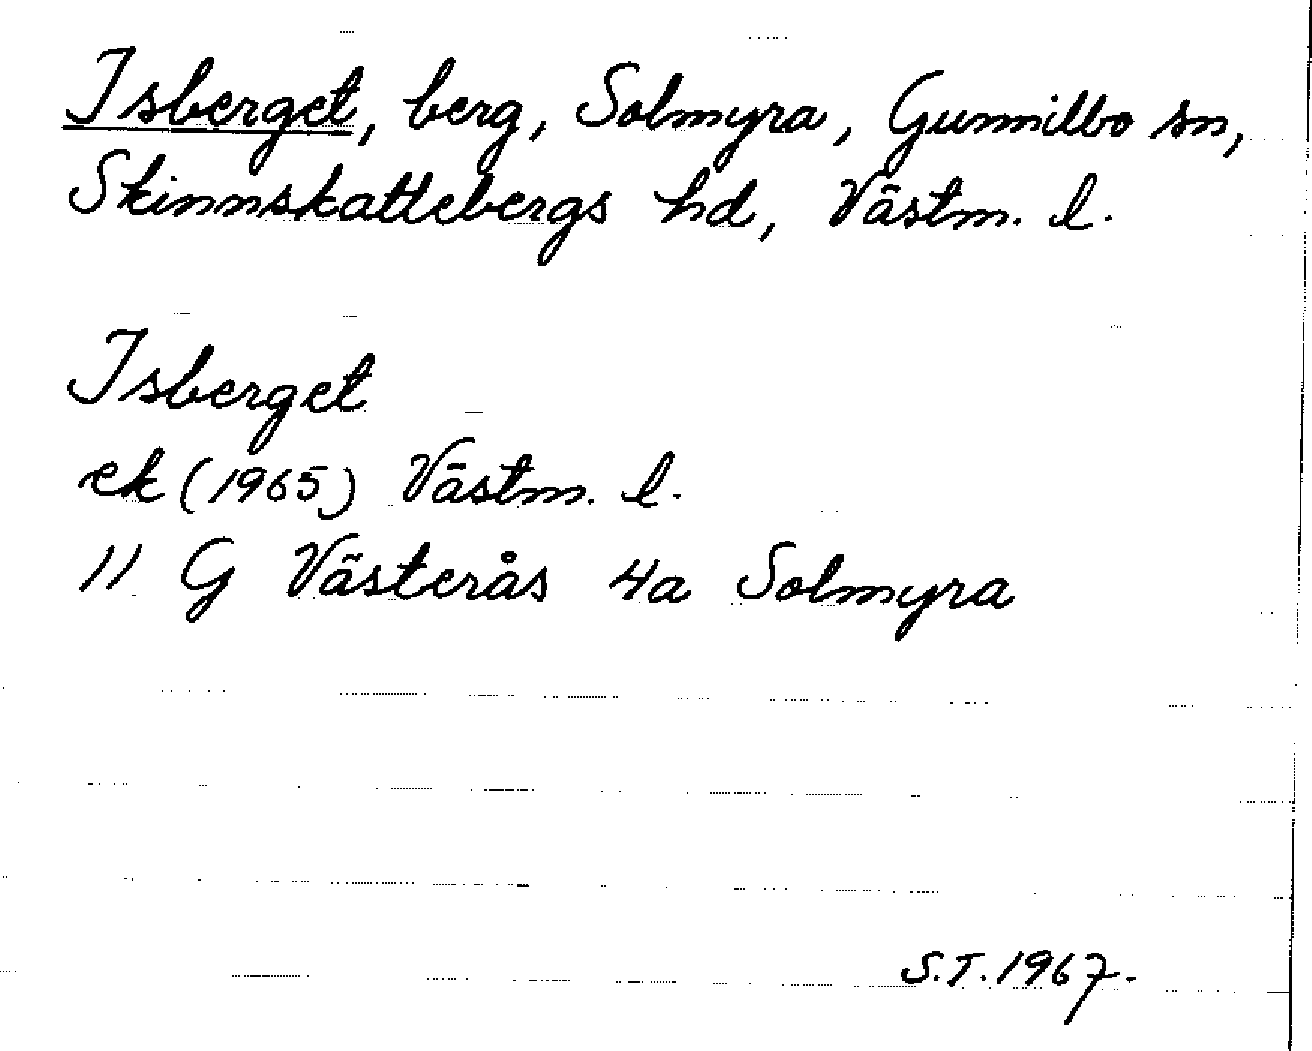 Isberget, berg, Solmyra, Gunnilbo sn,
Skinnskattebergs hd, Västm. l.
Isberget
ek (1965) Västm. l.
11 G Västerås 4a Solmyra
S.T. 1967.